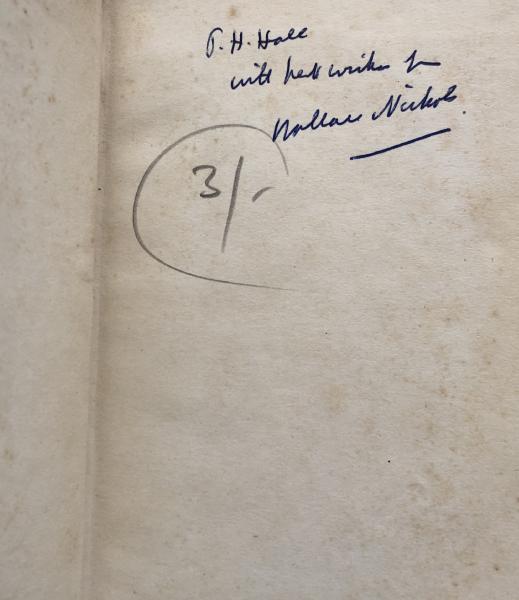 T. H. Hall
with best wishes from
Wallace Nichols.
3/-